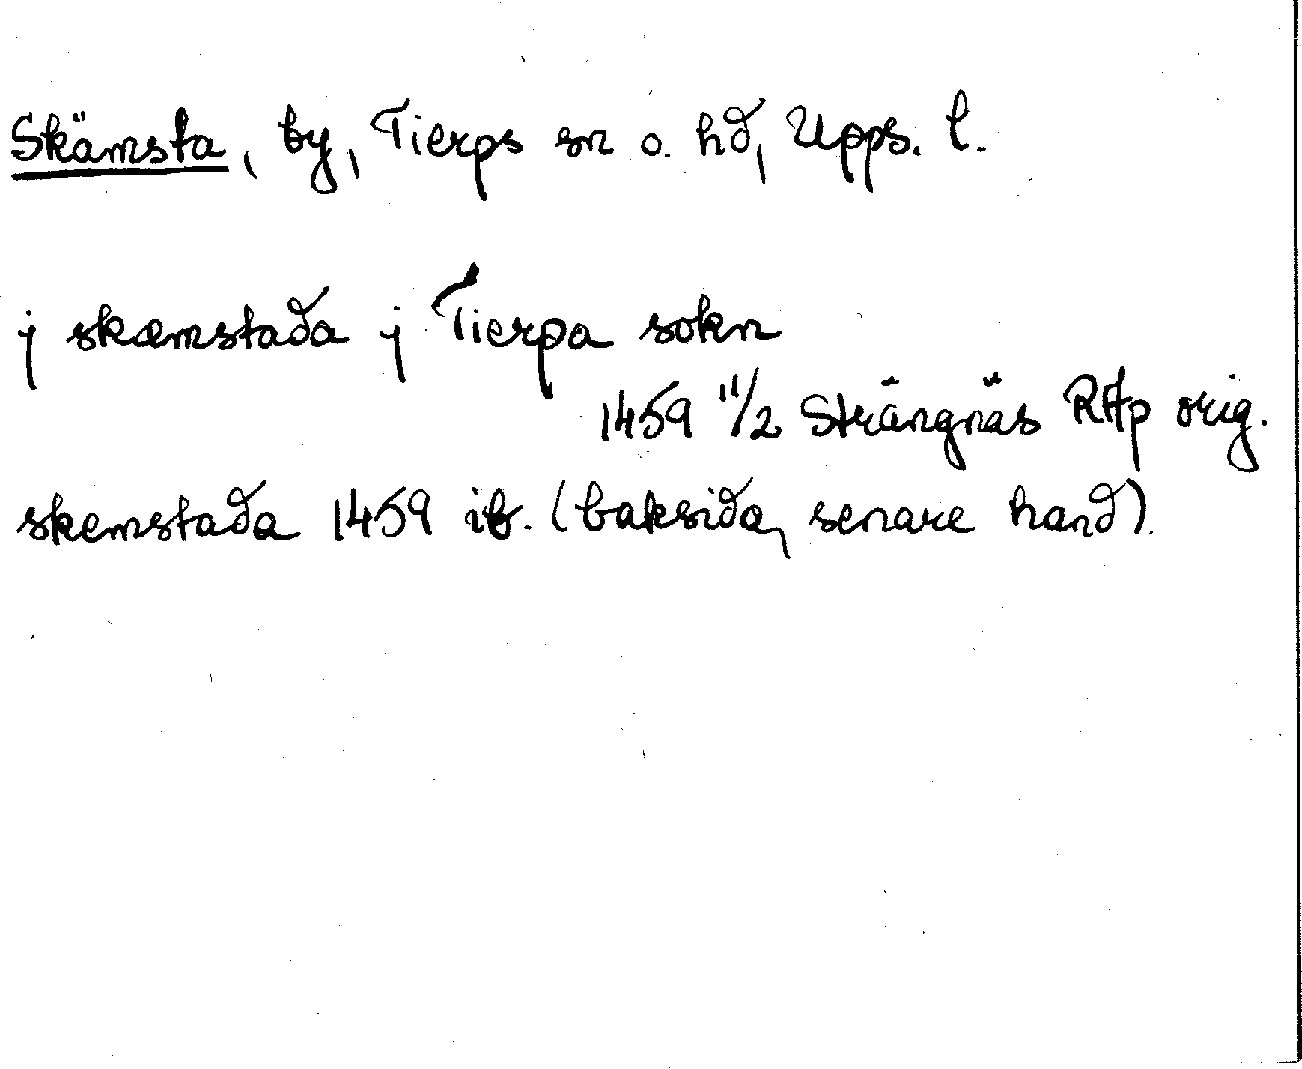 Skämsta, by, Tierps sn o. hd, Upps. l.
j skæmstada j Tierpa sokn
1459 11/2 Strängnäs RAp orig.
skemstada 1459 ib. (baksida, senare hand).